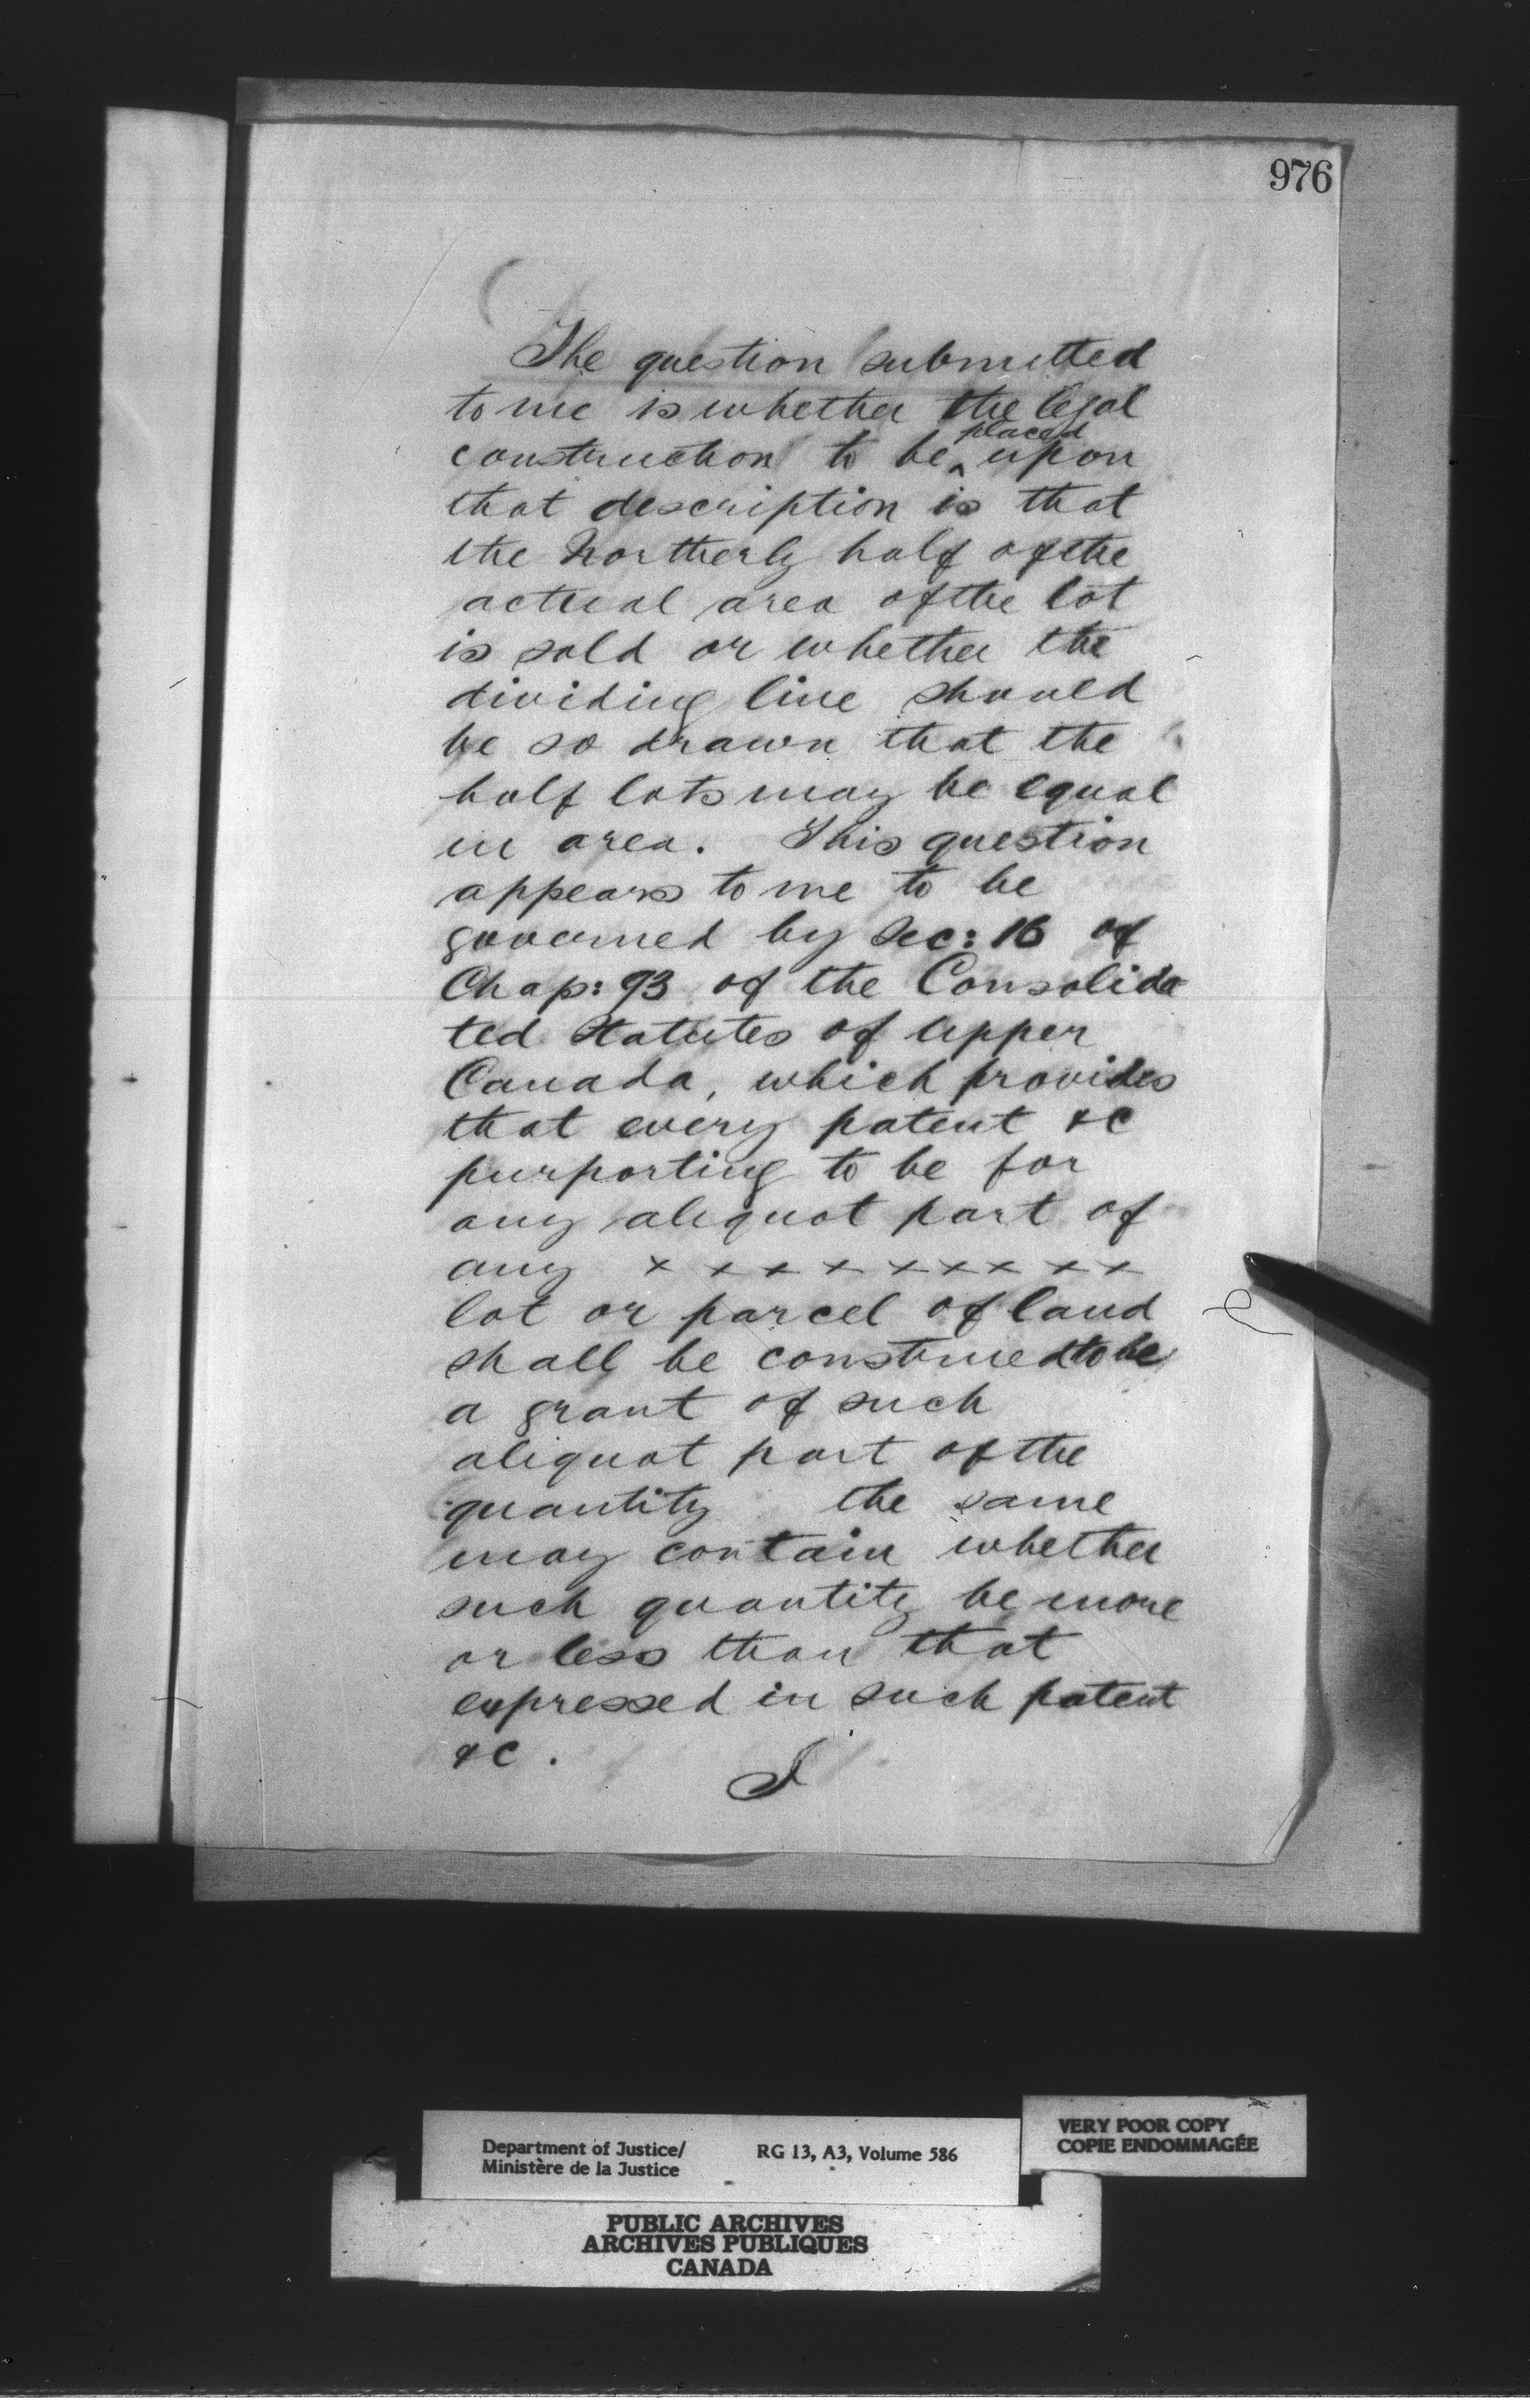 976
The question submitted
to me is whether the legal
construction to be ^placed upon
that description is that
the Northerly half of the
actual area of the lot
is sold or whether the
dividing line should
be so drawn that the
half lots may be equal
in area. This question
appears to me to be
governed by Sec: 16 of
Chap: 93 of the Consolida
ted Statutes of Upper
Canada, which provides
that every patent &c
purporting to be for
any aliquot part of
any x x x x x x x x x
lot or parcel of land
shall be construed to be
a grant of such
aliquot part of the
quantity the same
may contain whether
such quantity be more
or less than that
expressed in such patent
&c.
I
Department of Justice/
Ministère de la Justice
RG 13, A3, Volume 586
VERY POOR COPY
COPIE ENDOMMAGÉE
PUBLIC ARCHIVES
ARCHIVES PUBLIQUES
CANADA